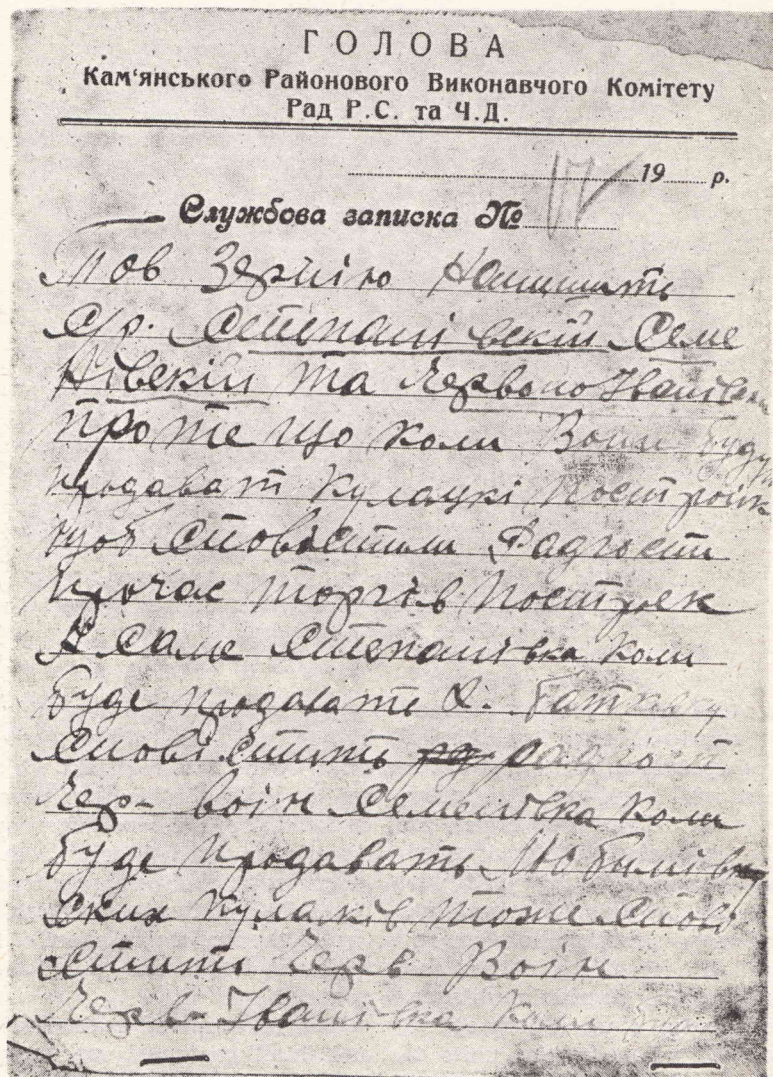 ГОЛОВА
Кам'янського Районового Виконавчого Комітету
Рад Р.С. та Ч.Д.
19 р.
Службова записка №
Тов Зернію Напишить
С/р. Степанівскій Семе
нівскій та Червоно Іванівск
про те що коли вони будут
продават кулацкі построік
щоб сповістили Радгоспи
прочас торгів построек
А саме Степанівка коли
буде продавате Х.
сповістить радгосп
Чер- воін Семенівка коли
буде продавать
ских кулаків тоже спові
стить Черв Воін
Черв- Іванівка коли